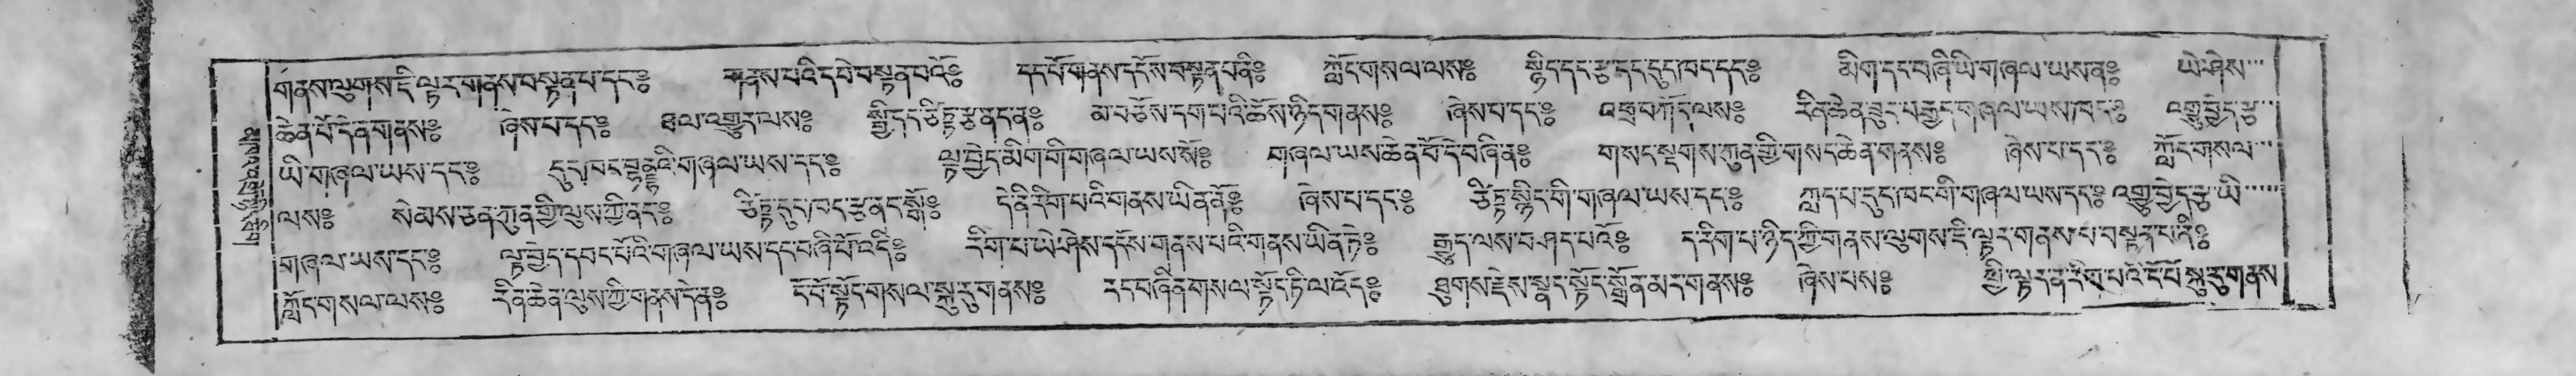 གནས་ལུགས་ཇི་ལྟར་གནས་བསྟན་པ་དང༔ གནས་པའི་དཔེ་བསྟན་པའོ༔ དང་པོ་གནས་དངོས་བསྟན་པནི༔ ཀློང་གསལ་ལས༔ སྙིང་དང་རྩ་དང་དུང་ཁང་དང༔ མིག་དང་བཞི་ཡི་གཞལ་ཡས་ན༔ ཡེ་ཤེས་
ཆེན་པོ་དེ་ན་གནས༔ ཞེས་པ་དང༔ ཐལ་འགྱུར་ལས༔ སྤྱི་དང་ཙིཏྟ་རྩ་ན་དན༔ མ་བཅོས་དག་པའི་ཆོས་ཉིད་གནས༔ ཞེས་པ་དང༔ འཕྲ་བཀོད་ལས༔ རིན་ཆེན་ཟུར་བརྒྱད་གཞལ་ཡས་ཁང༔ འགྱུ་བྱེད་རྩ་
ཡི་གཞལ་ཡས་དང༔ དུང་ཁང་བྷནྡྷའི་གཞལ་ཡས་དང༔ ལྟ་བྱེད་མིག་གི་གཞལ་ཡས་སོ༔ གཞལ་ཡས་ཆེན་པོ་དེ་བཞིན༔ གསང་སྔགས་ཀུན་གྱི་གསང་ཆེན་གནས༔ ཞེས་པ་དང༔ ཀློང་གསལ་
ལས༔ སེམས་ཅན་ཀུན་གྱི་ལུས་ཀྱི་ནང༔ ཙིཏྟ་དུང་ཁང་རྩ་ནང་སྒོ༔ དེ་ནི་རིག་པའི་གནས་ཡིན་ནོ༔ ཞེས་པ་དང༔ ཙིཏྟ་སྙིང་གི་གཞལ་ཡས་དང༔ ཀླད་པ་དུང་ཁང་གི་གཞལ་ཡས་དང༔ འགྱུ་བྱེད་རྩ་ཡི་
གཞལ་ཡས་དང༔ ལྟ་བྱེད་དབང་པོའི་གཞལ་ཡས་དང་བཞི་པོ་འདི༔ རིག་པ་ཡེ་ཤེས་དངོས་གནས་པའི་གནས་ཡིན་ཏེ༔ རྒྱུད་ལས་བཤད་པའོ༔ ད་རིག་པ་ཉིད་ཀྱི་གནས་ལུགས་ཇི་ལྟར་གནས་པ་བསྟན་པནི༔
ཀློང་གསལ་ལས༔ རིན་ཆེན་ལུས་ཀྱི་གནས་དེན༔ ངོ་བོ་སྟོང་གསལ་སྐུ་རུ་གནས༔ རང་བཞིན་གསལ་སྟོང་ཏི་ལ་འོད༔ ཐུགས་རྗེས་སྣང་སྟོང་སྒྲོན་མར་གནས༔ ཞེས་པས༔ སྤྱི་ལྟར་ན་རིག་པའི་ངོ་བོ་སྐུ་རུ་གནས